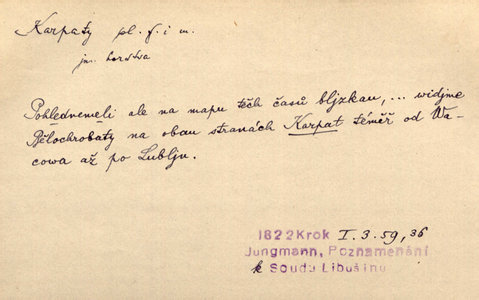 Karpaty pl. f. i m.
jm. horstva
Pohledneme-li ale na mapu těch časů bljzkau, ... widjme
Bělochrobaty na obau stranách Karpat téměř od Wa-
cowa až po Lublju.
1822 Krok I. 3. 59, 36
Jungmann, Poznamenání
k Soudu Libušinu